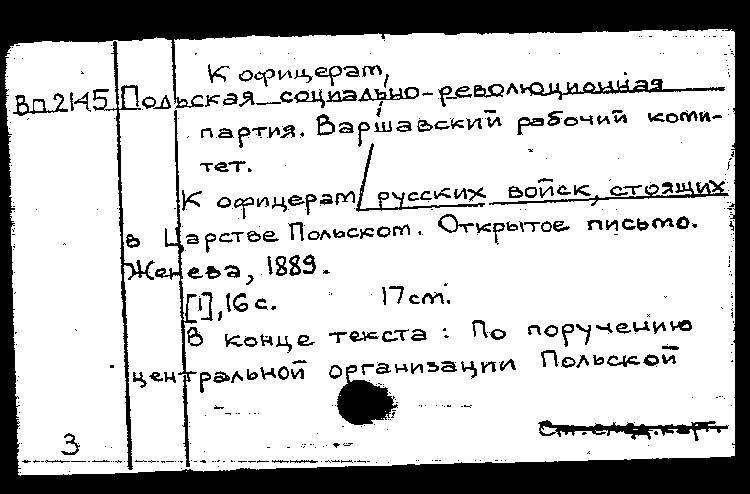 К офицерам,
Вп.2145 Польская социально-революционная
партия. Варшавский рабочий коми-
тет.
К офицерам русских войск, стоящих
в Царстве Польском. Открытое письмо.
Женева, 1889.
[1], 16 с. 17 см.
В конце текста: По поручению
центральной организации Польской
См. след. карт.
3